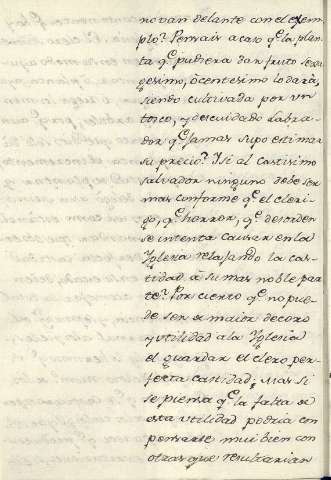 no van delante con el exem
plo? Pensais acaso q.e la plan
ta q.e pudiera dar fruto sexa
gesimo, ó centesimo lo daria,
siendo cultivada por un
tosco, y descuidado Labra
dor q.e Jamas supo estimar
su precio? Y si al castisimo
salvador ninguno debe ser
mas conforme q.e el cleri
go, q.e horror, q.e desorden
se intenta causar en la
Yglesia relajando la cas
tidad á su mas noble par
te? Por cierto q.e no pue
de ser de maior decoro
y utilidad a la Yglesia
el guardar el clero per
fecta castidad, mas si
se piensa q.e la falta de
esta utilidad podria com
pensarse mui bien con
otras que resultarian